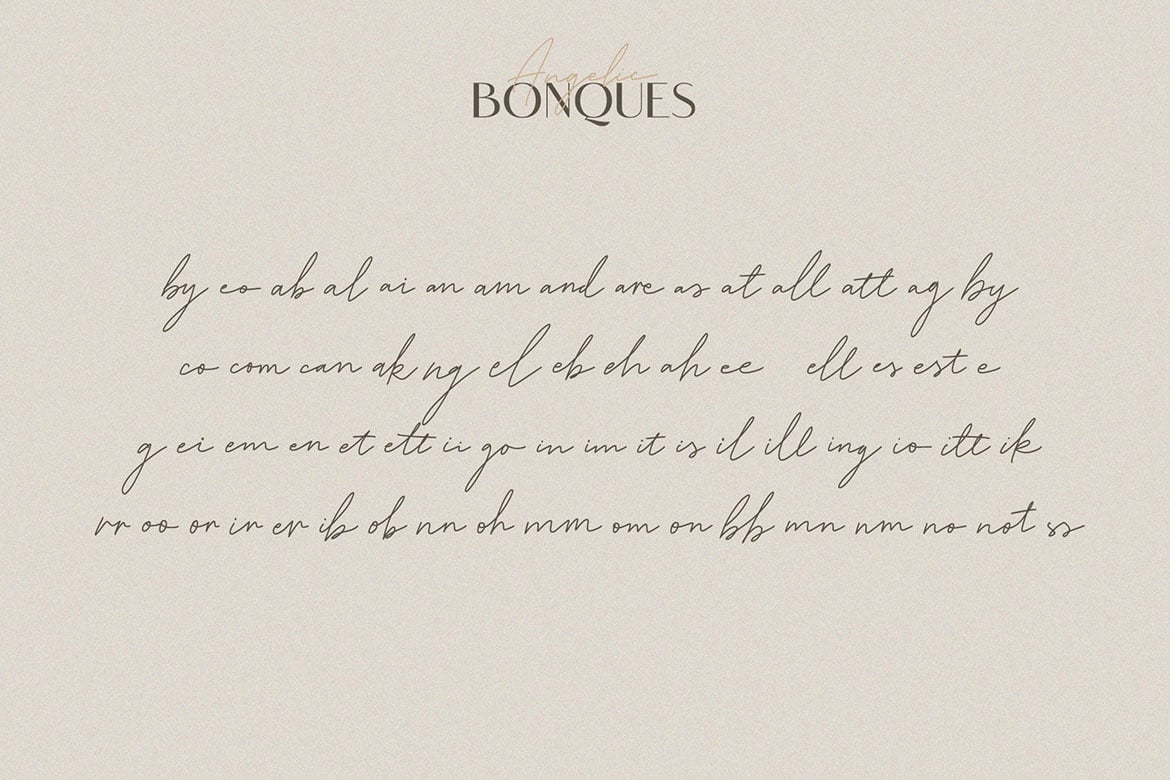 Angelic
BONQUES
by eo ab al ai an am and are as at all att ag by
co com can ak ng el eb eh ah ee ell es est e
g ei em en et ett ii go in im it is il ill ing io itt ik
rr oo or ir er ib ob nn oh mm om on bb mn nm no not ss